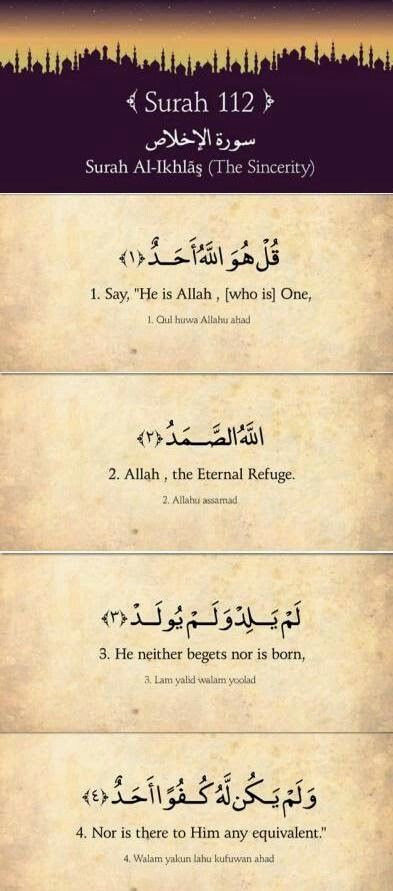 ﴾ Surah 112 ﴿
سورة الإخلاص
Surah Al-Ikhlāş (The Sincerity)
قُلْ هُوَ اللَّهُ أَحَدٌ ﴿١﴾
1. Say, "He is Allah , [who is] One,
1. Qul huwa Allahu ahad
اللَّهُ الصَّمَدُ ﴿٢﴾
2. Allah , the Eternal Refuge.
2. Allahu assamad
لَمْ يَلِدْ وَلَمْ يُولَدْ ﴿٣﴾
3. He neither begets nor is born,
3. Lam yalid walam yoolad
وَلَمْ يَكُن لَّهُ كُفُوًا أَحَدٌ ﴿٤﴾
4. Nor is there to Him any equivalent."
4. Walam yakun lahu kufuwan ahad